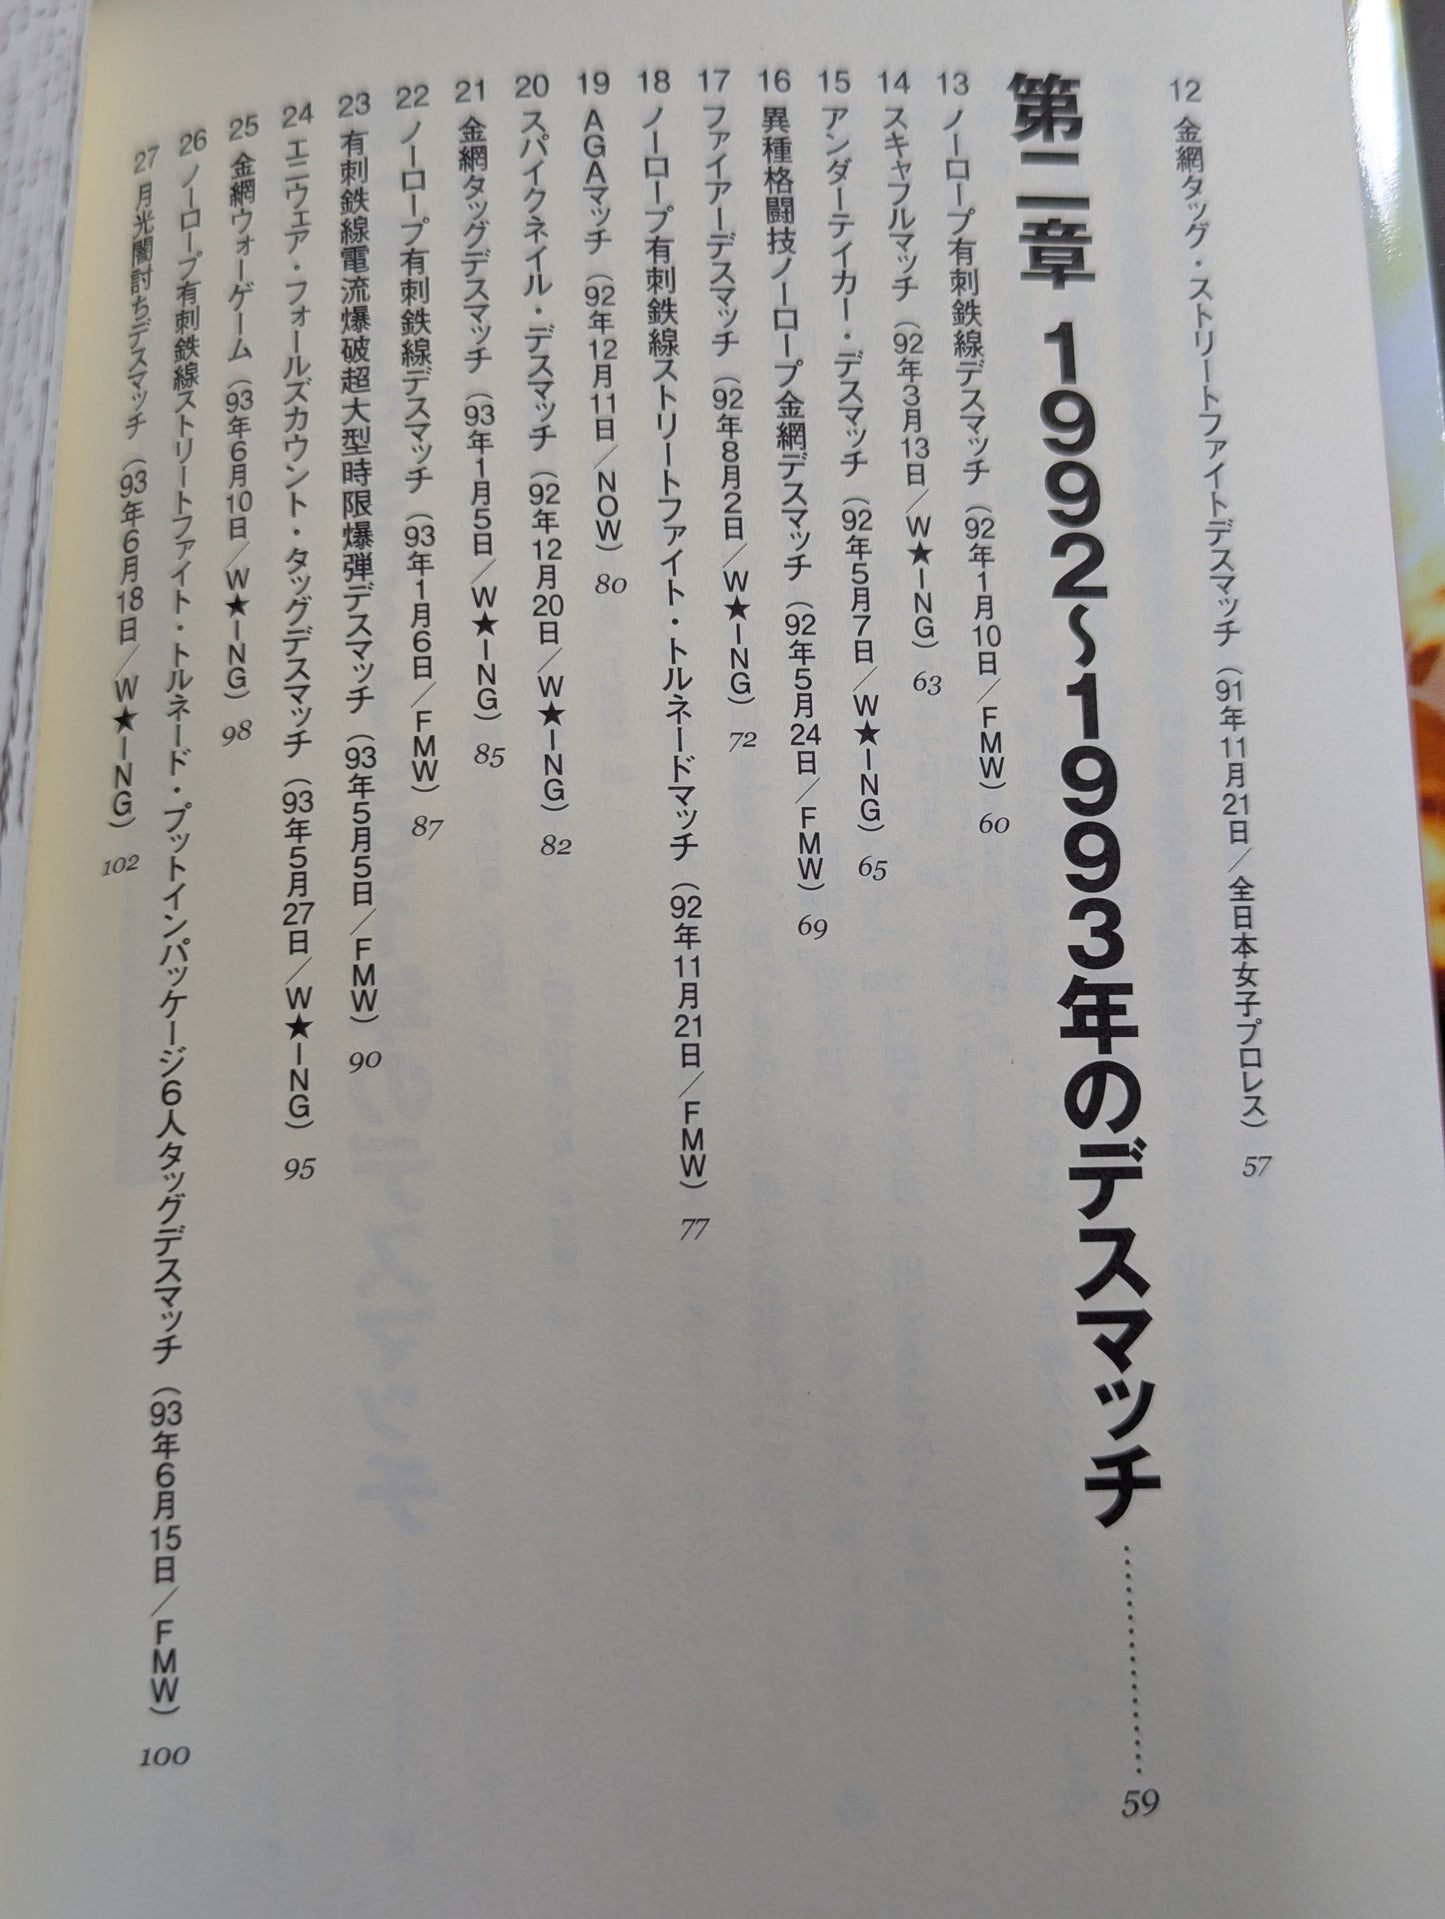 12 金網タッグ・ストリートファイトデスマッチ（91年11月21日／全日本女子プロレス） 57
第二章 1992〜1993年のデスマッチ…………59
13 ノーロープ有刺鉄線デスマッチ（92年1月10日／FMW） 60
14 スキャフルマッチ（92年3月13日／W★ING） 63
15 アンダーテイカー・デスマッチ（92年5月7日／W★ING） 65
16 異種格闘技ノーロープ金網デスマッチ（92年5月24日／FMW） 69
17 ファイアーデスマッチ（92年8月2日／W★ING） 72
18 ノーロープ有刺鉄線ストリートファイト・トルネードマッチ（92年11月21日／FMW） 77
19 AGAマッチ（92年12月11日／NOW） 80
20 スパイクネイル・デスマッチ（92年12月20日／W★ING） 82
21 金網タッグデスマッチ（93年1月5日／W★ING） 85
22 ノーロープ有刺鉄線デスマッチ（93年1月6日／FMW） 87
23 有刺鉄線電流爆破超大型時限爆弾デスマッチ（93年5月5日／FMW） 90
24 エニウェア・フォールズカウント・タッグデスマッチ（93年5月27日／W★ING） 95
25 金網ウォーゲーム（93年6月10日／W★ING） 98
26 ノーロープ有刺鉄線ストリートファイト・トルネード・プットインパッケージ6人タッグデスマッチ（93年6月15日／FMW） 100
27 月光闇討ちデスマッチ（93年6月18日／W★ING） 102